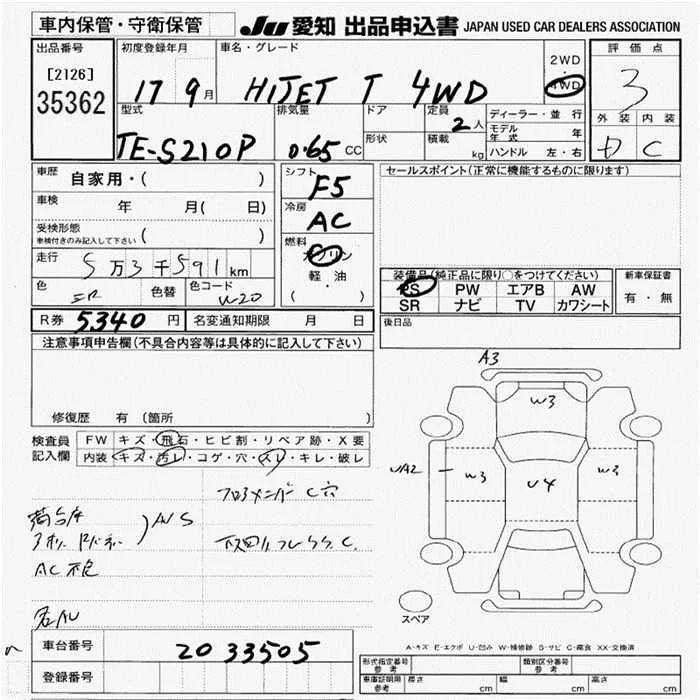 車内保管・守衛保管 JU 愛知 出品申込書 JAPAN USED CAR DEALERS ASSOCIATION
出品番号 [2126] 35362
初度登録年月 17 9月
車名・グレード HIJET T 4WD
2WD・4WD
評価点 3
外装 内装 C
型式 TE-S210P
排気量 0.65 CC
ドア
形状
定員 2人
積載 kg
ディーラー・並行
モデル年式 年
ハンドル 左・右
車歴 自家用・( )
シフト F5
セールスポイント(正常に機能するものに限ります)
車検 年 月( 日)
冷房 AC
受検形態 車検付きのみ記入して下さい ( )
燃料 ガソリン・軽油 ( )
走行 5万3千591km
色 色替 色コード W-20
装備品(純正品に限り○をつけてください)
PS PW エアB AW
SR ナビ TV カワシート
新車保証書 有・無
R券 5340円 名変通知期限 月 日
後日品
注意事項申告欄(不具合内容等は具体的に記入して下さい)
修復歴 有(箇所 )
検査員記入欄
FW キズ・飛石・ヒビ割・リペア跡・X要
内装 キズ・汚レ・コゲ・穴・スレ・キレ・破レ
A3
W3
UA2
W3
U4
W3
フロアメンバー C穴
荷台床
AWS
AC不良
スペア
A-キズ E-エクボ U-凹み W-補修跡 S-サビ C-腐食 XX-交換済
車台番号 20 33505
登録番号
形式指定番号 参考
類別区分番号 参考
車庫証明用 参考 長さ cm 幅 cm 高さ cm